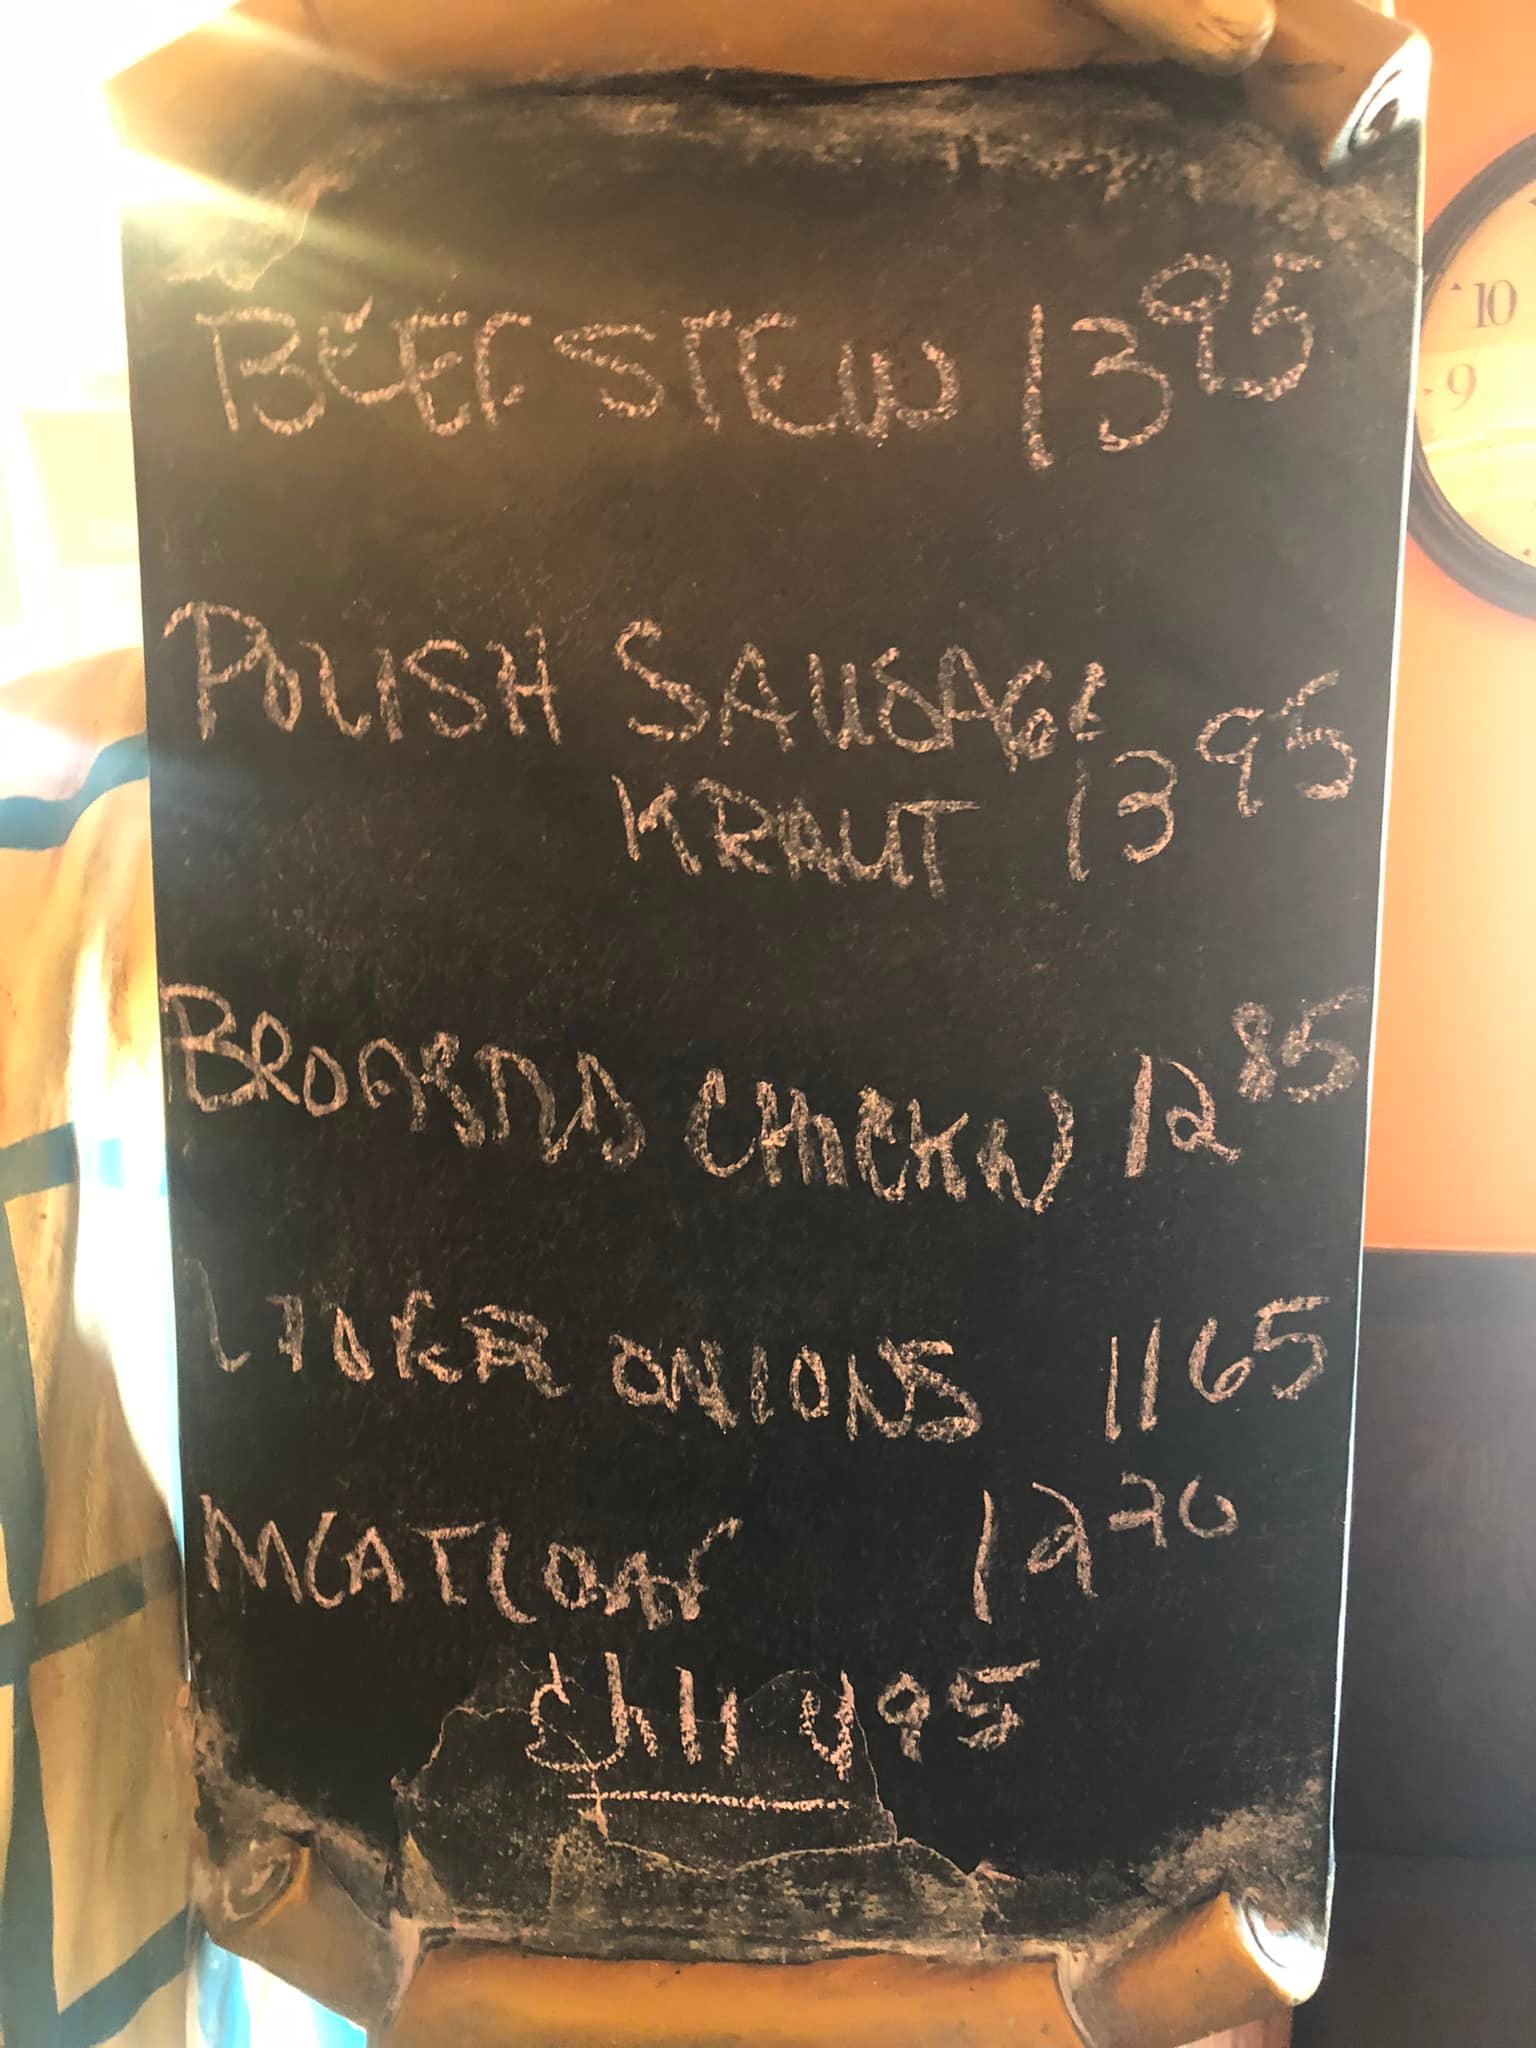 BEEF STEW 13 95
POLISH SAUSAGE
KRAUT 13 95
BROASTD CHICKN 12 85
LIVER ONIONS 11 65
MEATLOAF 12 20
Chili 4 95
10
9